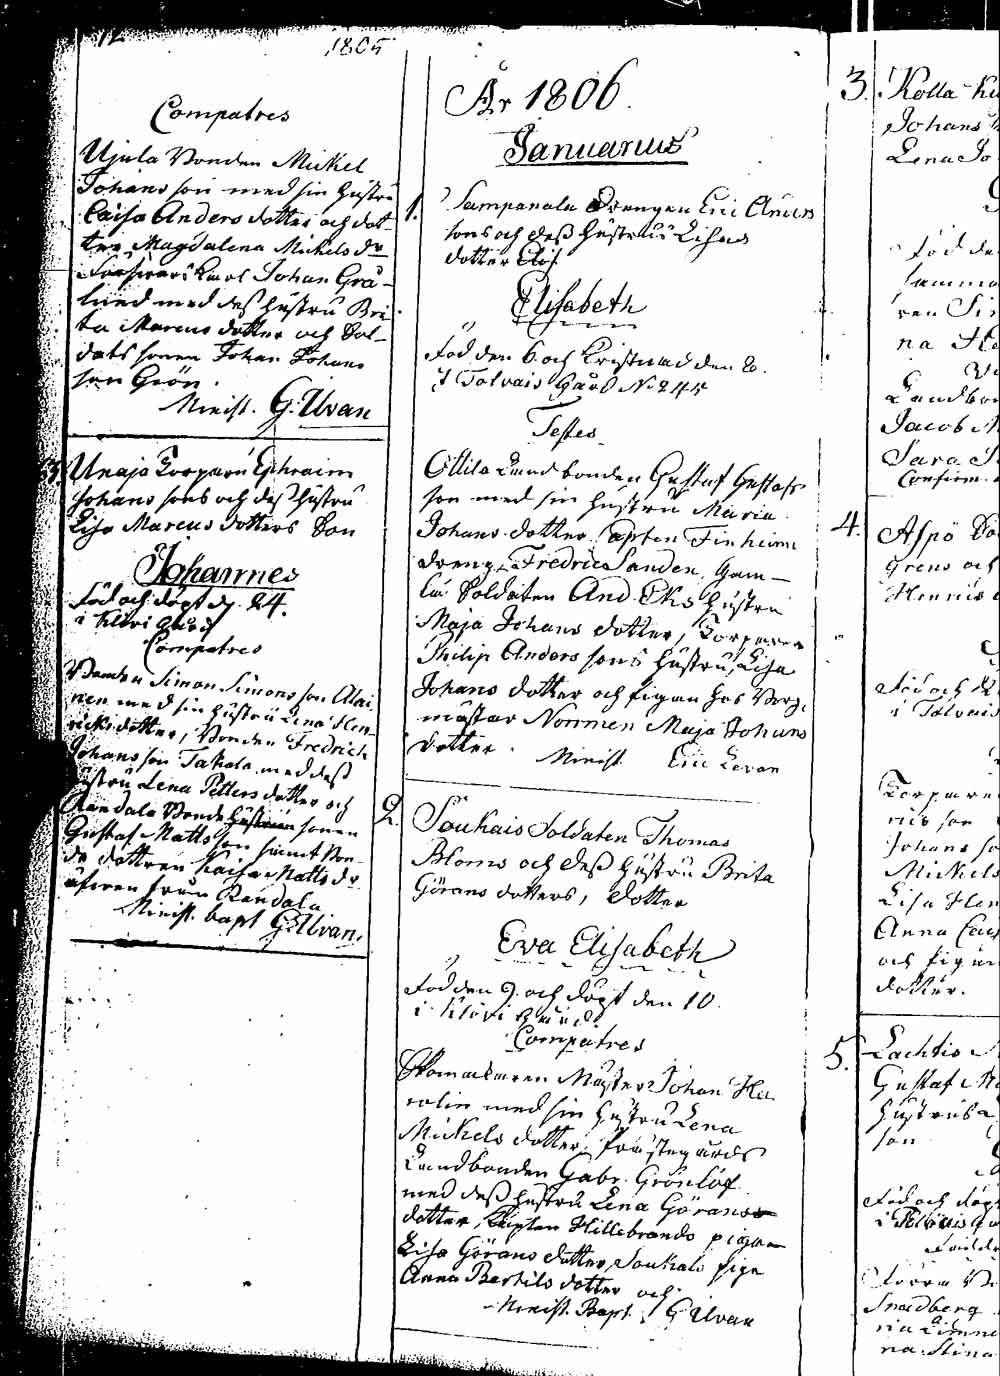 12
1805
Compatres
Ujula Bonden Mickel
Johans son med sin hustru
Caisa Anders dotter och dot-
ter Magdalena Mickels dr
Karl Johan Grå-
lund med dess hustru Bri
ta Marcus dotter och Sol-
dats sonen Johan Johans
son Grön.
Minist. G. Ulvan
Unaja Torparn Ephraim
Johans sons och dess hustru
Lisa Marcus dotters Son
Johannes
Föd och döpt d. 24.
i Klövi gård
Compatres
Bonden Simon Simons son Alai
nen med sin hustru Lena Hen-
ricks dotter, Bonden Fredrich
Johans son Takala med dess
hustru Lena Petters dotter och
Randala Bonde sonen
Gustaf Matts son samt Bon-
de dottren Kaisa Matts dr
äfven från Randala
Minist. bapt G. Ulvan.
År 1806.
Januarius
1. Sampanala Drengen Eric Anders
sons och dess hustrus Lisas
dotter
Elisabeth
Föd den 6 och Kristnad den 8.
i Tolvais Gård No 245
Testes
Ottila Landbonden Gustaf Gustafs
son med sin hustru Maria
Johans dotter, Capten
dreng Fredric Sanden, Gam-
la Soldaten And. Eks hustru
Maja Johans dotter, Torparen
Philip Anders sons hustru, Lisa
Johans dotter och pigan hos Borg-
mästar Normen Maja Johans
dotter.
Minist. Eric Levan
2. Soukais Soldaten Thomas
Bloms och dess hustru Brita
Görans dotters, dotter
Eva Elisabeth
Föd den 9. och döpt den 10.
i Klövi gård
Compatres
Skomakaren Mäster Johan He-
rolin med sin hustru Lena
Mickels dotter, prästegårds
Landbonden Gabr. Grönlöf
med dess hustru Lena Görans
dotter, Capten Hillebrands piga
Lisa Görans dotter, Soukais piga
Anna Bertils dotter och
Minist. Bapt. G Ulvan
3. Kolla
Johans
Lena Jo
Föd de
samma
ren Si
na He
Landbon
Jacob M
Sara
Confirm.
4. Aspö
Grens och
Henrics
Föd och
i Tolvais
Torparen
rics son
Johans so
Mickels
Lisa Hen
Anna Cais
och pigan
dotter.
5. Lachtis
Gustaf Ma
hustrus
son
Föd och döpt
i Tolvais
Snadberg
ria Linne
na Stina